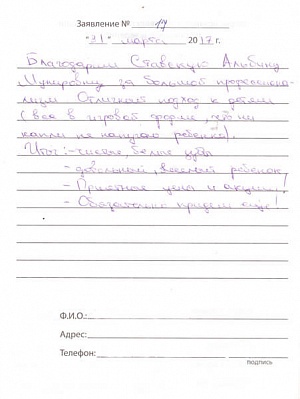 Заявление № 17
"31" марта 2017 г.
Благодарим Ставскую Альбину
Мунировну за большой профессиона-
лизм. Отличный подход к детям
(все в игровой форме, что ни
капли не напугало ребенка).
Итог: - чистые, белые зубы
- довольный, веселый ребенок,
- Приятные цены и акции...!
- Обязательно придем еще!
Ф.И.О.:
Адрес:
Телефон:
подпись